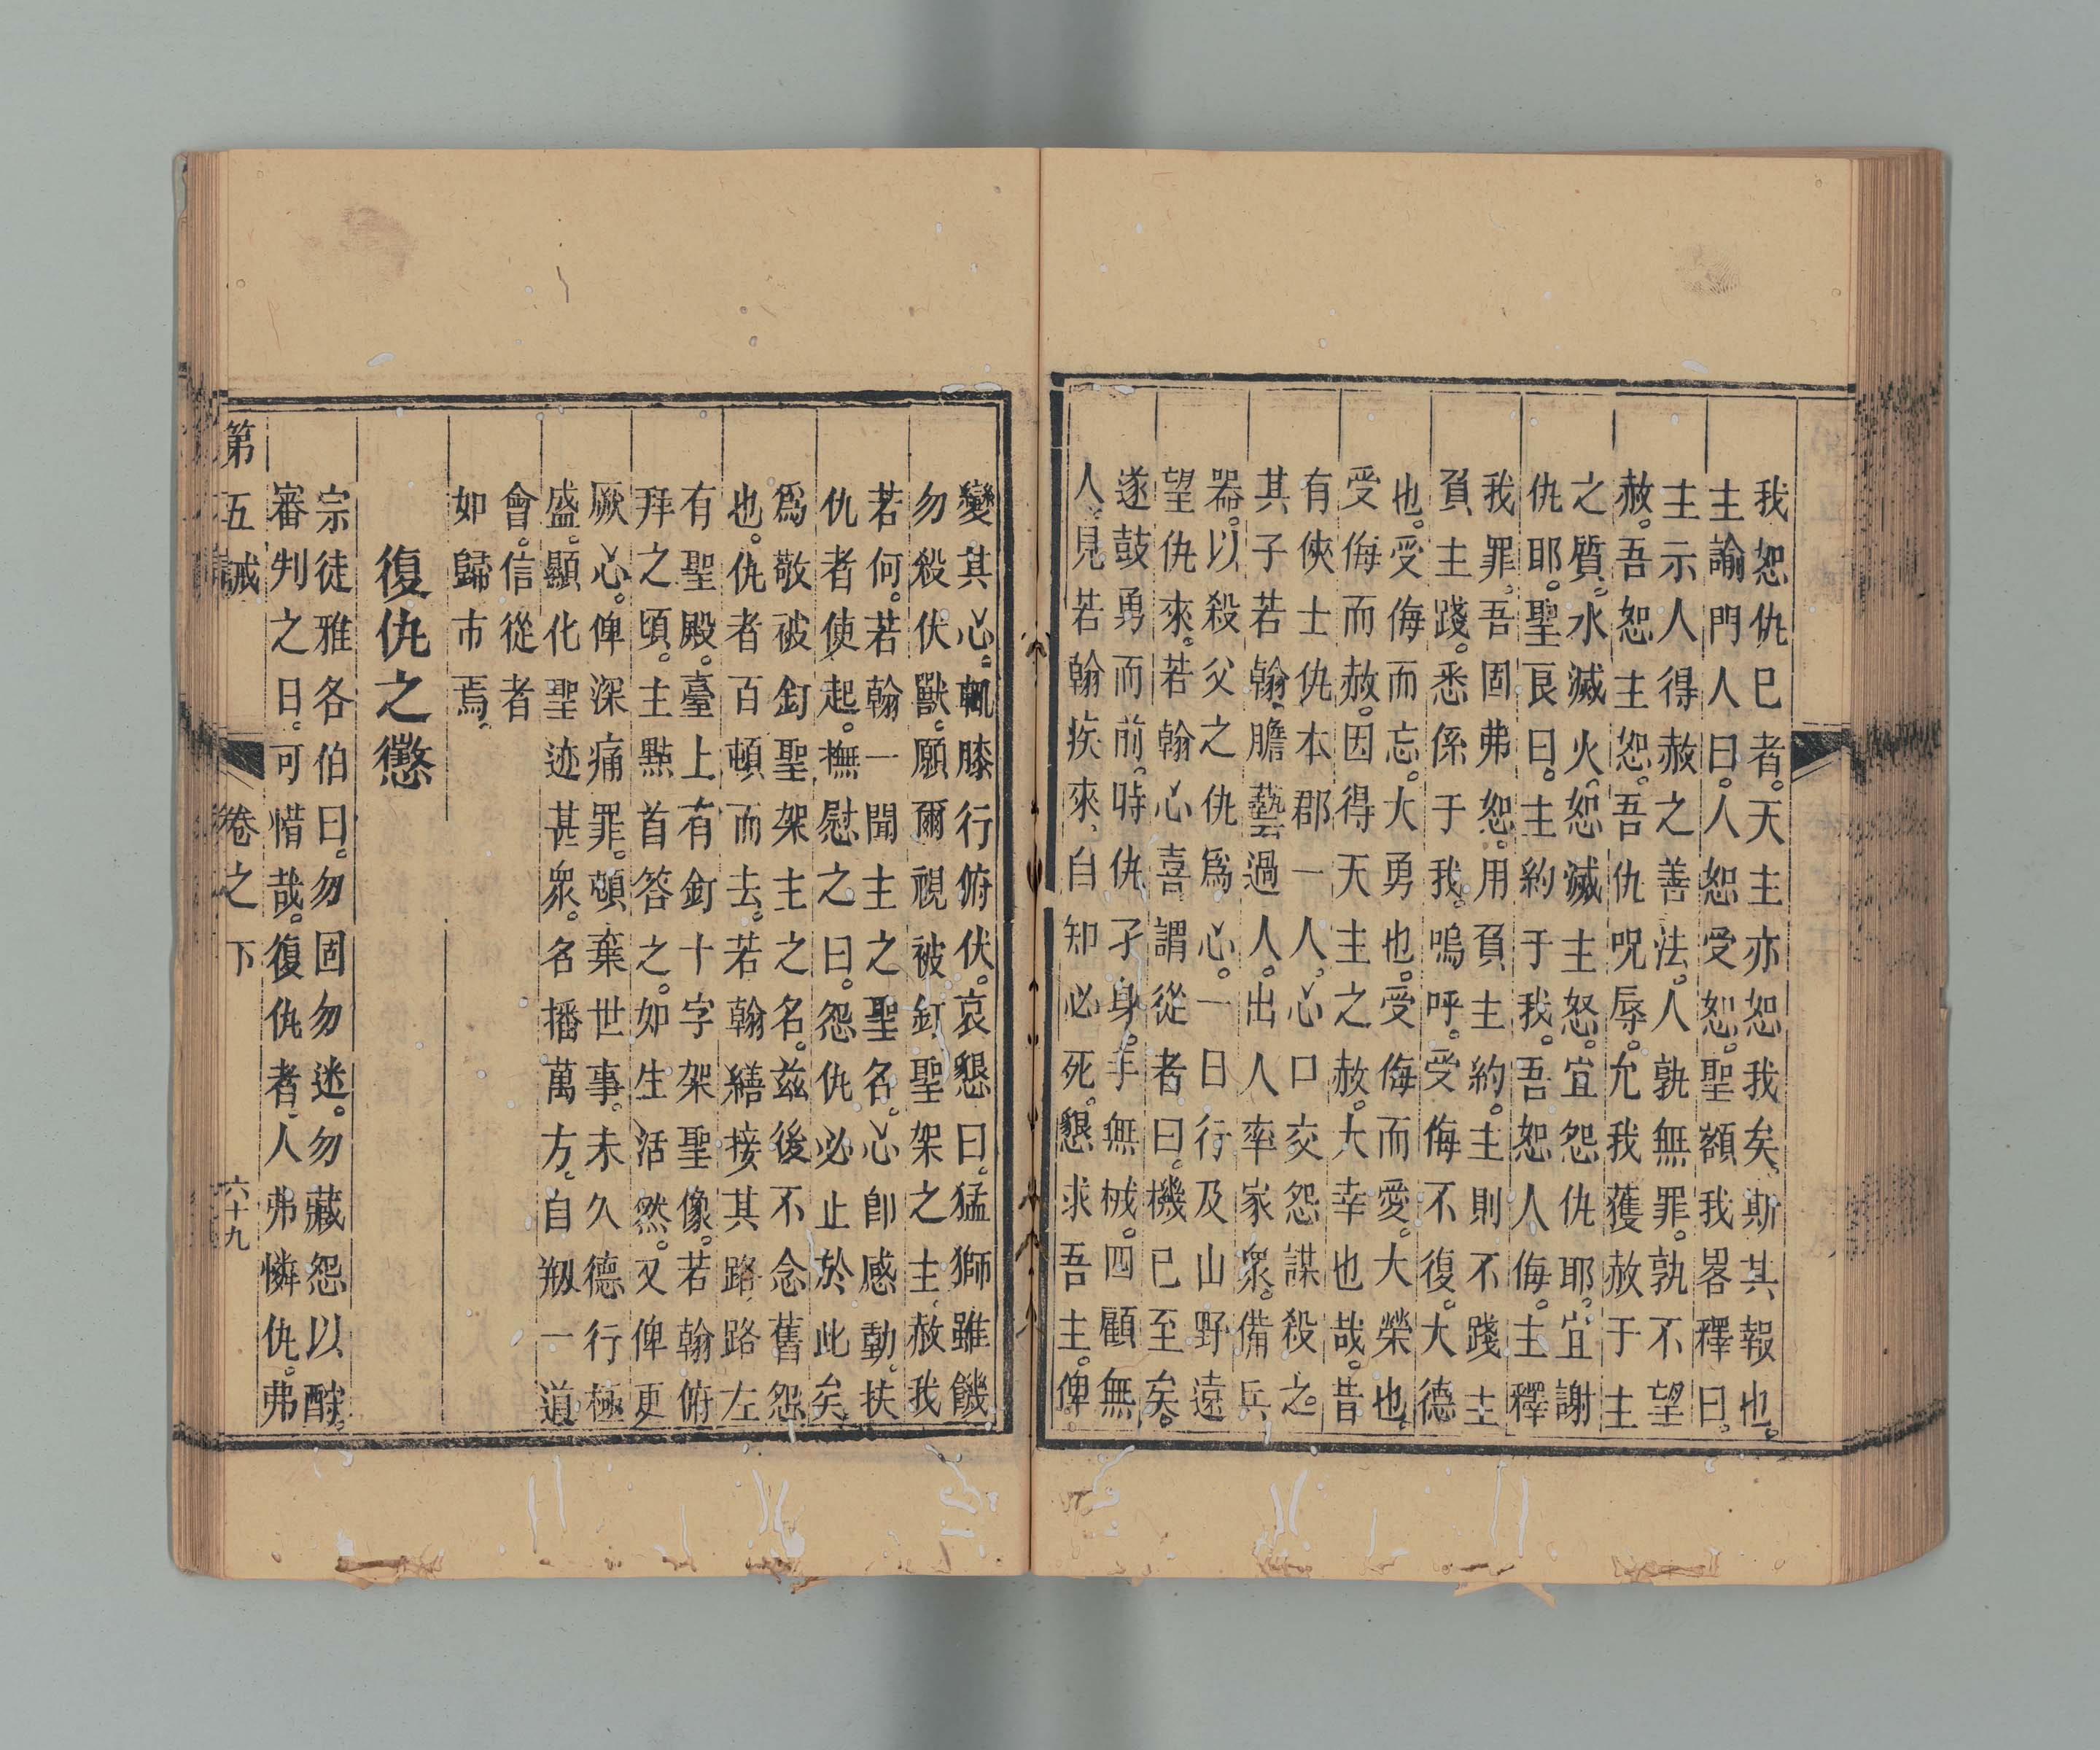 我恕仇巳者。天主亦恕我矣、斯其報也。
主諭門人曰。人恕受恕。聖額我畧釋曰。
主示人得赦之善法。人孰無罪。孰不望
赦。吾恕主恕。吾仇呪辱。允我獲赦于主
之質。水滅火。恕滅主怒。宜怨仇耶。宜謝
仇耶。聖良曰。主約于我。吾恕人侮。主釋
我罪。吾固弗恕。用負主約。主則不踐主
負主踐。悉係于我。嗚呼。受侮不復。大德
也。受侮而忘。大勇也。受侮而愛。大榮也。
受侮而赦。因得天主之赦。大幸也哉。昔
有俠士仇本郡一人、心口交怨謀殺之。
其子若翰、膽藝過人。出人率家衆。備兵
器。以殺父之仇爲心。一日行及山野遠
望仇來。若翰心喜謂從者曰。機已至矣。
遂鼓勇而前。時仇孑身。手無械。四顧無
人。見若翰疾來、自知必死。懇求吾主。俾
變其心。輒膝行俯伏。哀懇曰。猛獅雖饑
勿殺伏獸。願爾視被釘聖架之主、赦我
若何。若若翰一聞主之聖名。心卽感動。扶
仇者使起。撫慰之曰。怨仇必止於此矣。
爲敬被釘聖架主之名。茲後不念舊怨
也。仇者百頓而去。若翰繕接其路路左
有聖殿。臺上有釘十字架聖像。若翰俯
拜之頃。主㸃首答之。如生活然。又俾更
厥心。俾深痛罪。頓棄世事。未久德行極
盛。顯化聖迹甚衆。名播萬方。自剏一道
會。信從者
如歸市焉。
復仇之懲
宗徒雅各伯曰。勿固勿迷。勿藏怨以讐。
審判之日。可惜哉。復仇者、人弗憐仇。弗
第五誡 卷之下 六十九